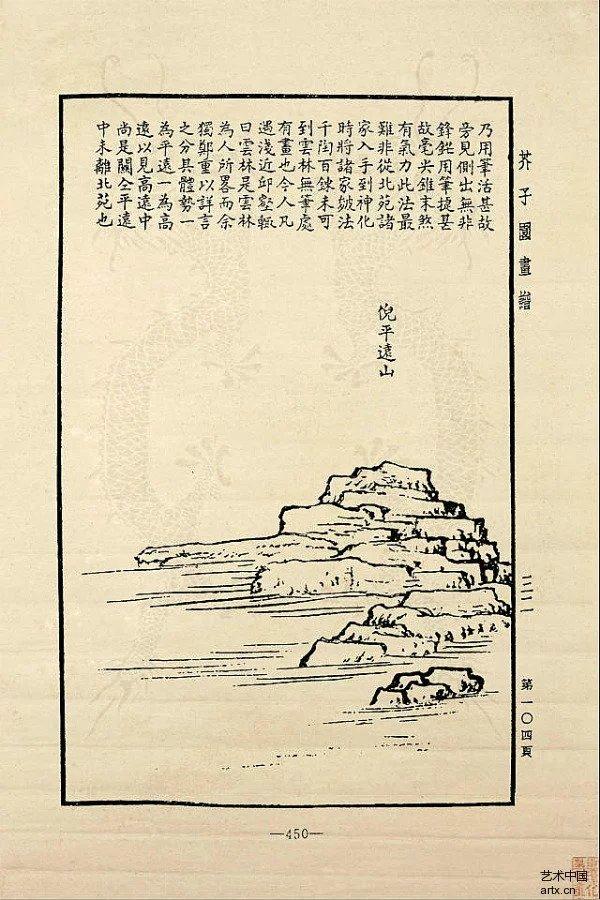 芥子園畫譜
第一〇四頁
乃用筆活甚故
旁見側出無非
鋒鋩用筆捷甚
故毫尖錐末煞
有氣力此法最
雖非從北苑諸
家入手到神化
時將諸家皴法
千閏百鍊未可
到雲林無筆處
有畫也今人凡
遇淺近邱壑輒
曰雲林是雲林
為人所畧而余
獨鄭重以詳言
之分其體勢一
為平遠一為高
遠以見高遠中
尚是關仝平遠
中未離北苑也
倪平遠山
—450—
艺术中国
artx.cn